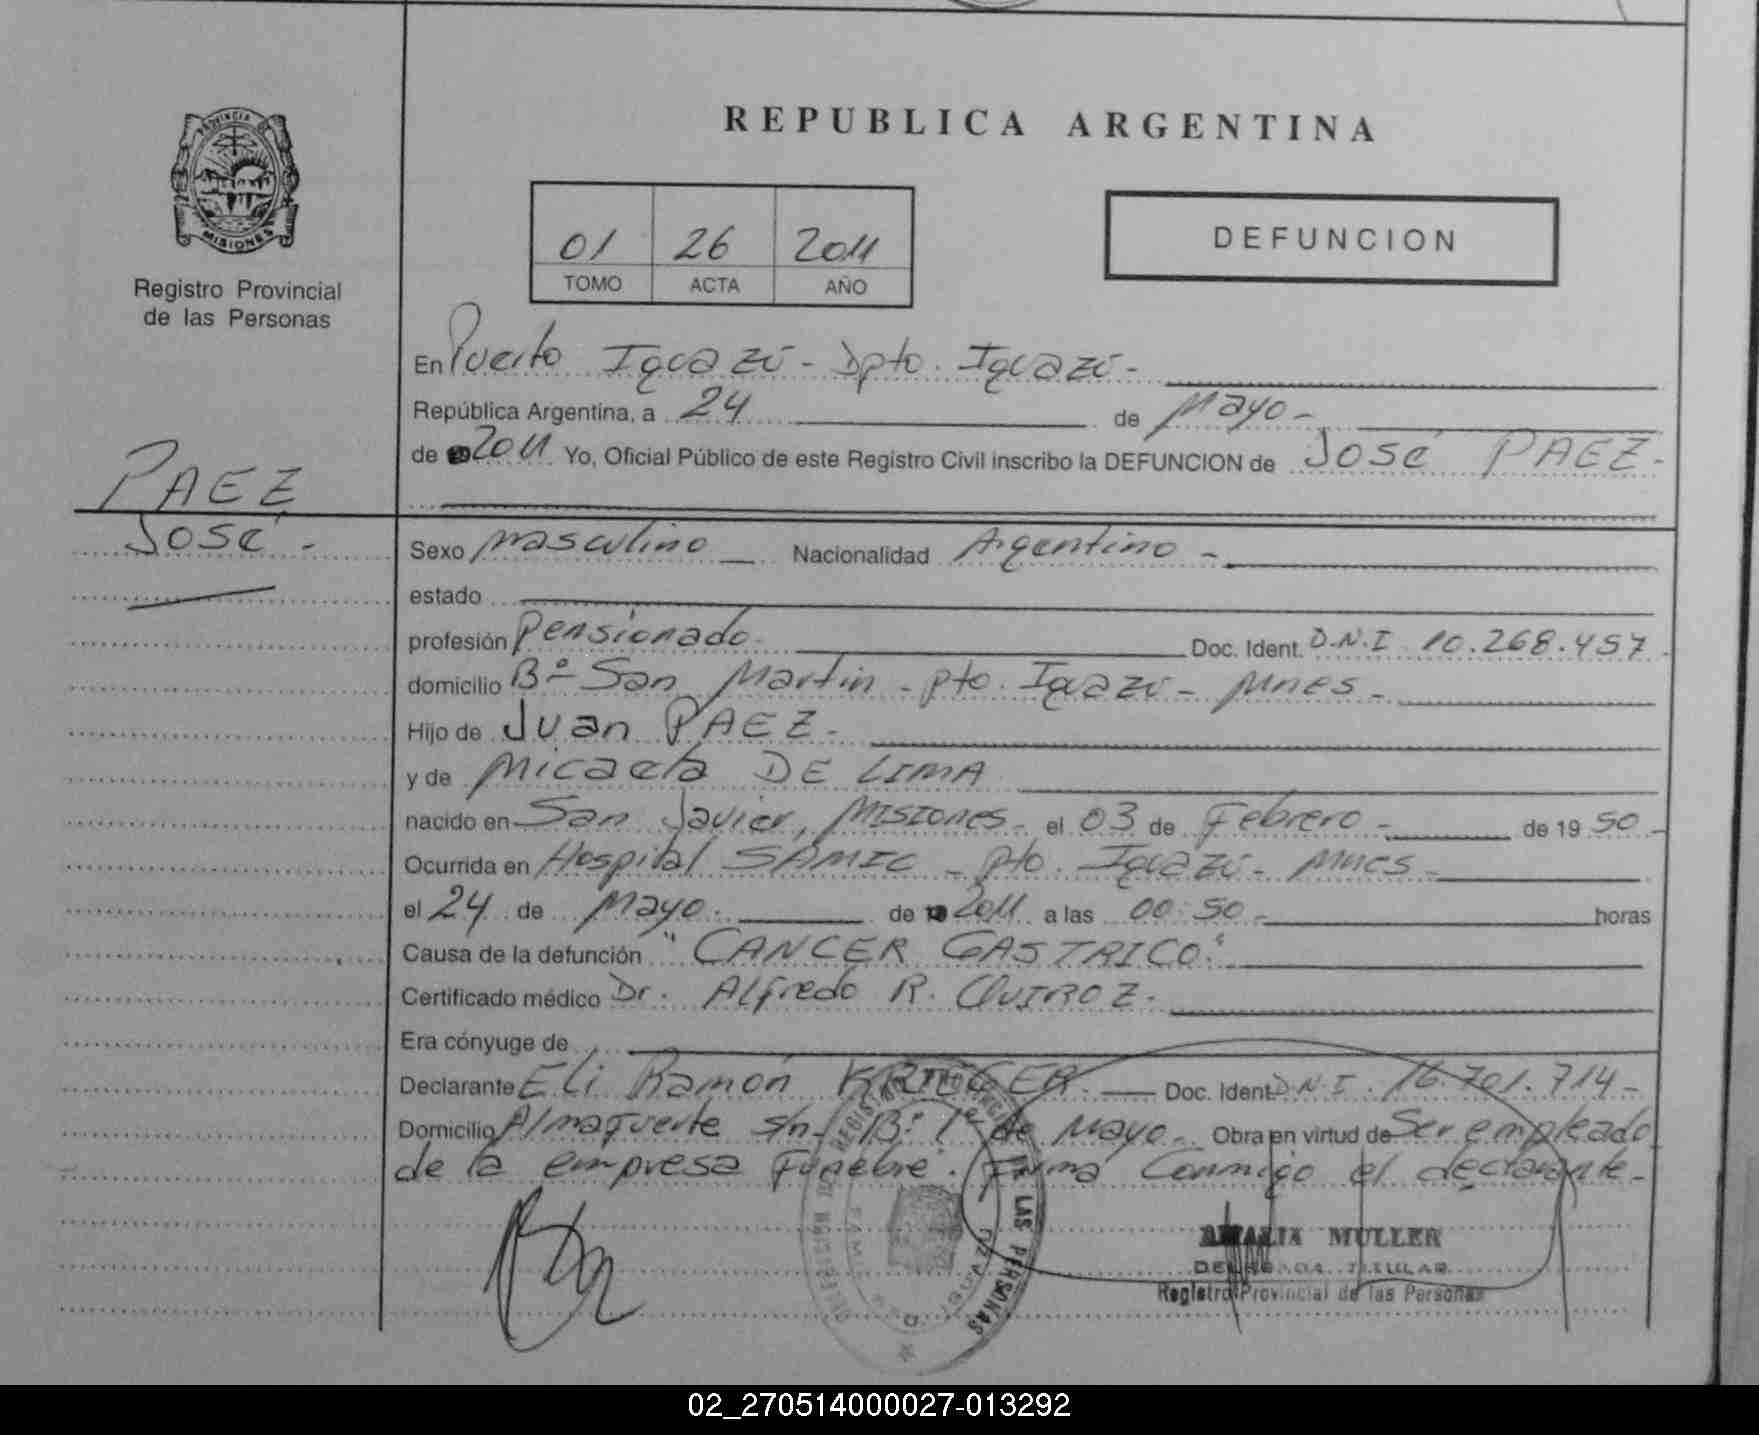 REPUBLICA ARGENTINA
PROVINCIA DE
MISIONES
Registro Provincial
de las Personas
01 26 2011
TOMO ACTA AÑO
DEFUNCION
En Puerto Iguazú - Dpto. Iguazú -
República Argentina, a 24 de Mayo -
de 2011 Yo, Oficial Público de este Registro Civil inscribo la DEFUNCION de José PAEZ -
PAEZ
José -
Sexo Masculino Nacionalidad Argentino -
estado
profesión Pensionado. Doc. Ident. D.N.I 10.268.457
domicilio Bº San Martin - pto. Iguazú - Mnes -
Hijo de Juan PAEZ -
y de Micaela DE LIMA
nacido en San Javier, Misiones - el 03 de Febrero - de 19 50 -
Ocurrida en Hospital SAMIC - pto. Iguazú - Mnes -
el 24 de Mayo. de 2011 a las 00:50 - horas
Causa de la defunción "CANCER GASTRICO"
Certificado médico Dr. Alfredo R. QUIROZ -
Era cónyuge de
Declarante Eli Ramón KRIEGER - Doc. Ident. D.N.I. 16.701.714 -
Domicilio Almafuerte s/n - Bº 1º de Mayo - Obra en virtud de Ser empleado
de la empresa Funebre. Firma Conmigo el declarante -
LAS PERSONAS
AMALIA MULLER
DELEGADA TITULAR
Registro Provincial de las Personas
02_270514000027-013292